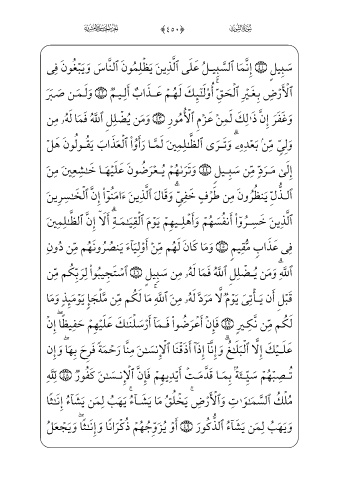 ﴿٤٥٠﴾
سَبِيلٍ إِنَّمَا ٱلسَّبِيلُ عَلَى ٱلَّذِينَ يَظْلِمُونَ ٱلنَّاسَ وَيَبْغُونَ فِى
ٱلْأَرْضِ بِغَيْرِ ٱلْحَقِّ ۚ أُو۟لَـٰٓئِكَ لَهُمْ عَذَابٌ أَلِيمٌ وَلَمَن صَبَرَ
وَغَفَرَ إِنَّ ذَٰلِكَ لَمِنْ عَزْمِ ٱلْأُمُورِ وَمَن يُضْلِلِ ٱللَّهُ فَمَا لَهُۥ مِن
وَلِىٍّ مِّنۢ بَعْدِهِۦ ۗ وَتَرَى ٱلظَّـٰلِمِينَ لَمَّا رَأَوُا۟ ٱلْعَذَابَ يَقُولُونَ هَلْ
إِلَىٰ مَرَدٍّ مِّن سَبِيلٍ وَتَرَىٰهُمْ يُعْرَضُونَ عَلَيْهَا خَـٰشِعِينَ مِنَ
ٱلذُّلِّ يَنظُرُونَ مِن طَرْفٍ خَفِىٍّ ۗ وَقَالَ ٱلَّذِينَ ءَامَنُوٓا۟ إِنَّ ٱلْخَـٰسِرِينَ
ٱلَّذِينَ خَسِرُوٓا۟ أَنفُسَهُمْ وَأَهْلِيهِمْ يَوْمَ ٱلْقِيَـٰمَةِ ۗ أَلَآ إِنَّ ٱلظَّـٰلِمِينَ
فِى عَذَابٍ مُّقِيمٍ وَمَا كَانَ لَهُم مِّنْ أَوْلِيَآءَ يَنصُرُونَهُم مِّن دُونِ
ٱللَّهِ ۗ وَمَن يُضْلِلِ ٱللَّهُ فَمَا لَهُۥ مِن سَبِيلٍ ٱسْتَجِيبُوا۟ لِرَبِّكُم مِّن
قَبْلِ أَن يَأْتِىَ يَوْمٌ لَّا مَرَدَّ لَهُۥ مِنَ ٱللَّهِ ۚ مَا لَكُم مِّن مَّلْجَإٍ يَوْمَئِذٍ وَمَا
لَكُم مِّن نَّكِيرٍ فَإِنْ أَعْرَضُوا۟ فَمَآ أَرْسَلْنَـٰكَ عَلَيْهِمْ حَفِيظًا ۖ إِنْ
عَلَيْكَ إِلَّا ٱلْبَلَـٰغُ ۗ وَإِنَّآ إِذَآ أَذَقْنَا ٱلْإِنسَـٰنَ مِنَّا رَحْمَةً فَرِحَ بِهَا ۖ وَإِن
تُصِبْهُمْ سَيِّئَةٌۢ بِمَا قَدَّمَتْ أَيْدِيهِمْ فَإِنَّ ٱلْإِنسَـٰنَ كَفُورٌ لِّلَّهِ
مُلْكُ ٱلسَّمَـٰوَٰتِ وَٱلْأَرْضِ ۚ يَخْلُقُ مَا يَشَآءُ ۚ يَهَبُ لِمَن يَشَآءُ إِنَـٰثًا
وَيَهَبُ لِمَن يَشَآءُ ٱلذُّكُورَ أَوْ يُزَوِّجُهُمْ ذُكْرَانًا وَإِنَـٰثًا ۖ وَيَجْعَلُ